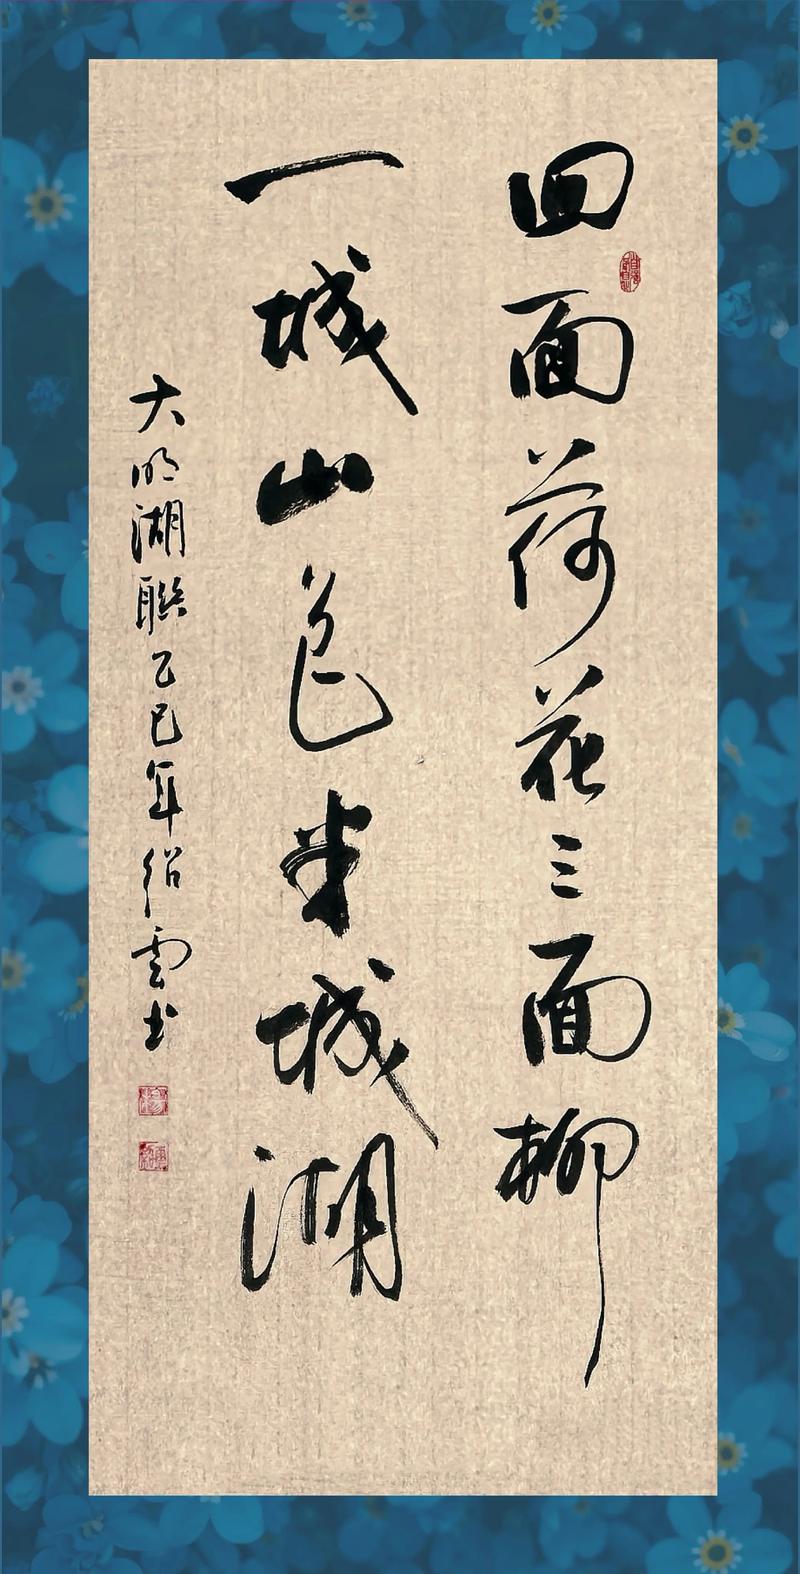 四面荷花三面柳
一城山色半城湖
大明湖聯乙巳年紹雲书